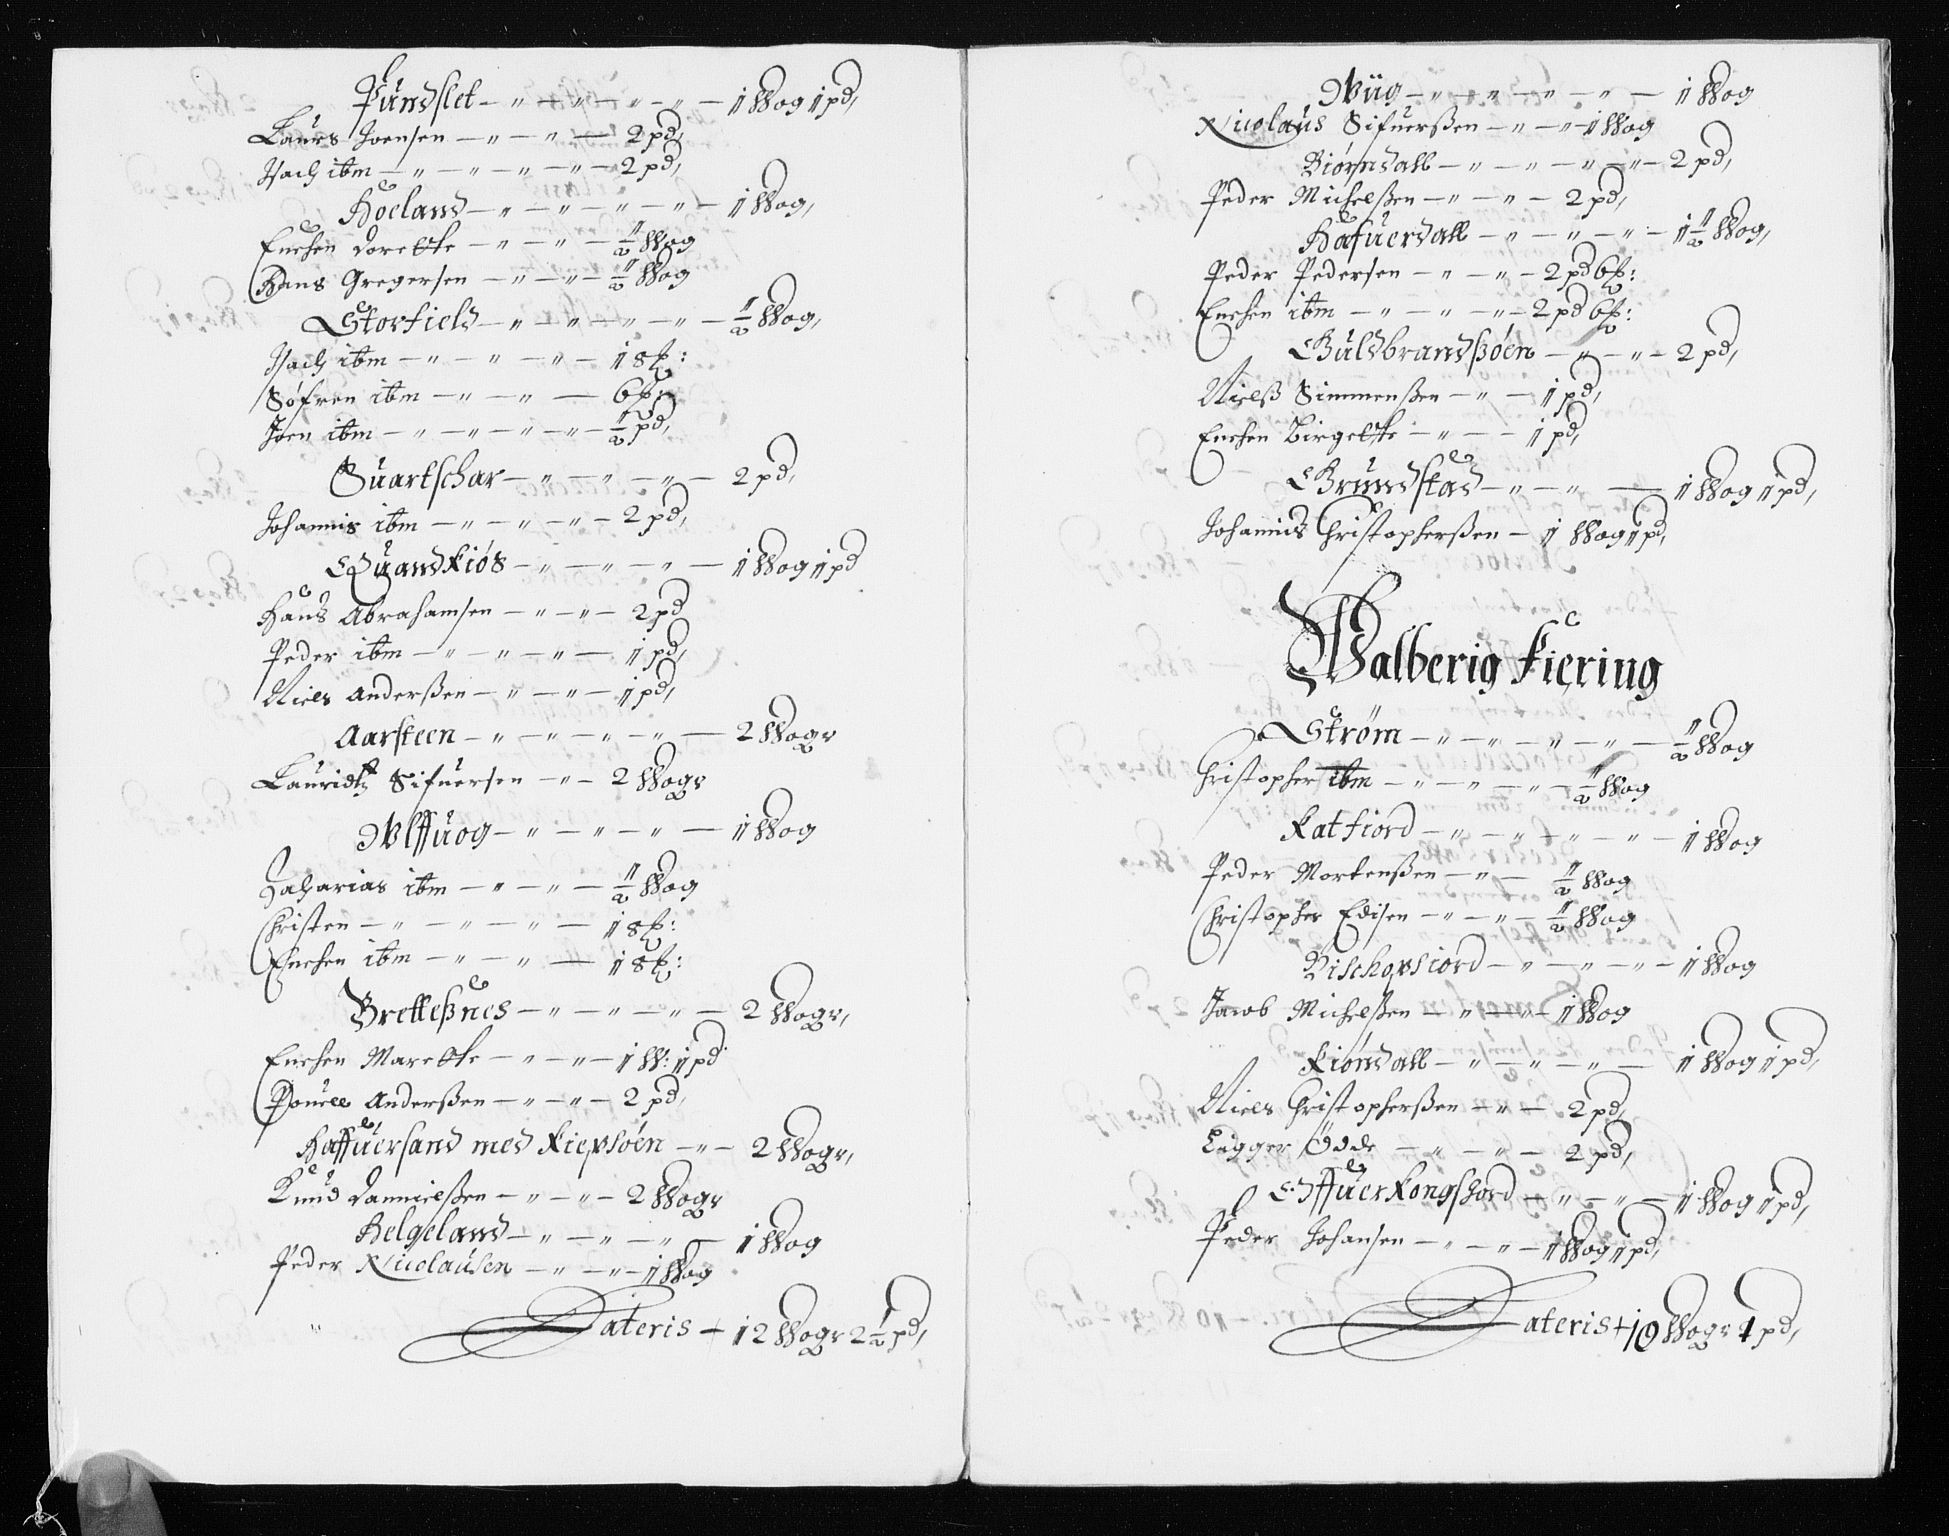 Pundslet - " - " - " - " - 1 Wog 1 pd,
Laurs Joensen - " - " - 2 pd,
Isach ibm - " - " - " - " - 2 pd,
Høeland - " - " - " - " - 1 Wog,
Enchen Dorette - " - " - ½ Wog
Hans Gregersen - " - " - ½ Wog
Storfield - " - " - " - " - ½ Wog,
Isach ibm - " - " - " - 18 ℔:
Søfren ibm - " - " - 6 ℔:
Joen ibm - " - " - " - " - ½ pd,
Suartschar - " - " - " - 2 pd,
Johannis ibm - " - " - " - 2 pd,
Quandkiøs - " - " - " - 1 Wog 1 pd
Hans Abrahamsen - " - " - 2 pd
Peder ibm - " - " - " - 1 pd,
Niels Anderßen - " - " - 1 pd,
Aarsteen - " - " - " - " - 2 Wogr
Lauridtz Sifuersen - " - 2 Wogr
Wlffuog - " - " - " - 1 Wog
Zacharias ibm - " - " - ½ Wog
Christen - " - " - " - " - 18 ℔:
Enchen ibm - " - " - 18 ℔:
Bretteßnes - " - " - " - 2 Wogr,
Enchen Marette - " - " - 1 W: 1 pd
Pouell Anderßen - " - " - 2 pd,
Haffuersand med Kiepsøen - " - 2 Wogr,
Knud Dannielßen - " - " - 2 Wogr
Helgeland - " - " - " - 1 Wog
Peder Nicolausen - " - " - 1 Wog
Lateris + 12 Wogr 2½ pd,
Wiig - " - " - " - " - 1 Wog
Nicolaus Sifuerßen - " - " - 1 Wog
Biørndall - " - " - " - " - 2 pd,
Peder Michelßen - " - " - 2 pd,
Hafuerdall - " - " - " - 1½ Wog,
Peder Pedersen - " - " - 2 pd 6 ℔:
Enchen ibm - " - " - " - 2 pd 6 ℔:
Guldbrandßøen - " - " - 2 pd,
Nielß Simmenßen - " - 1 pd,
Enchen Birgette - " - - 1 pd,
Grundstad - " - " - 1 Wog 1 pd,
Johannis Christopherßen - 1 Wog 1 pd,
Walberig Fiering
Strøm - " - " - " - " - ½ Wog
Christopher ibm - " - " - " - ½ Wog
Katfiord - " - " - " - " - 1 Wog
Peder Mortenßen - " - ½ Wog
Christopher Edisen - " - " - ½ Wog
Bischopsiord - " - " - " - 1 Wog
Jacob Michelßen - " - " - 1 Wog
Kiøndall - " - " - " - 1 Wog 1 pd,
Niels Christopherßen - " - 2 pd,
Ligger Ødde - " - " - 2 pd,
Offuerkongsiord - " - " - 1 Wog 1 pd,
Peder Johansen - " - " - 1 Wog 1 pd,
Lateris + 10 Wogr 1 pd,